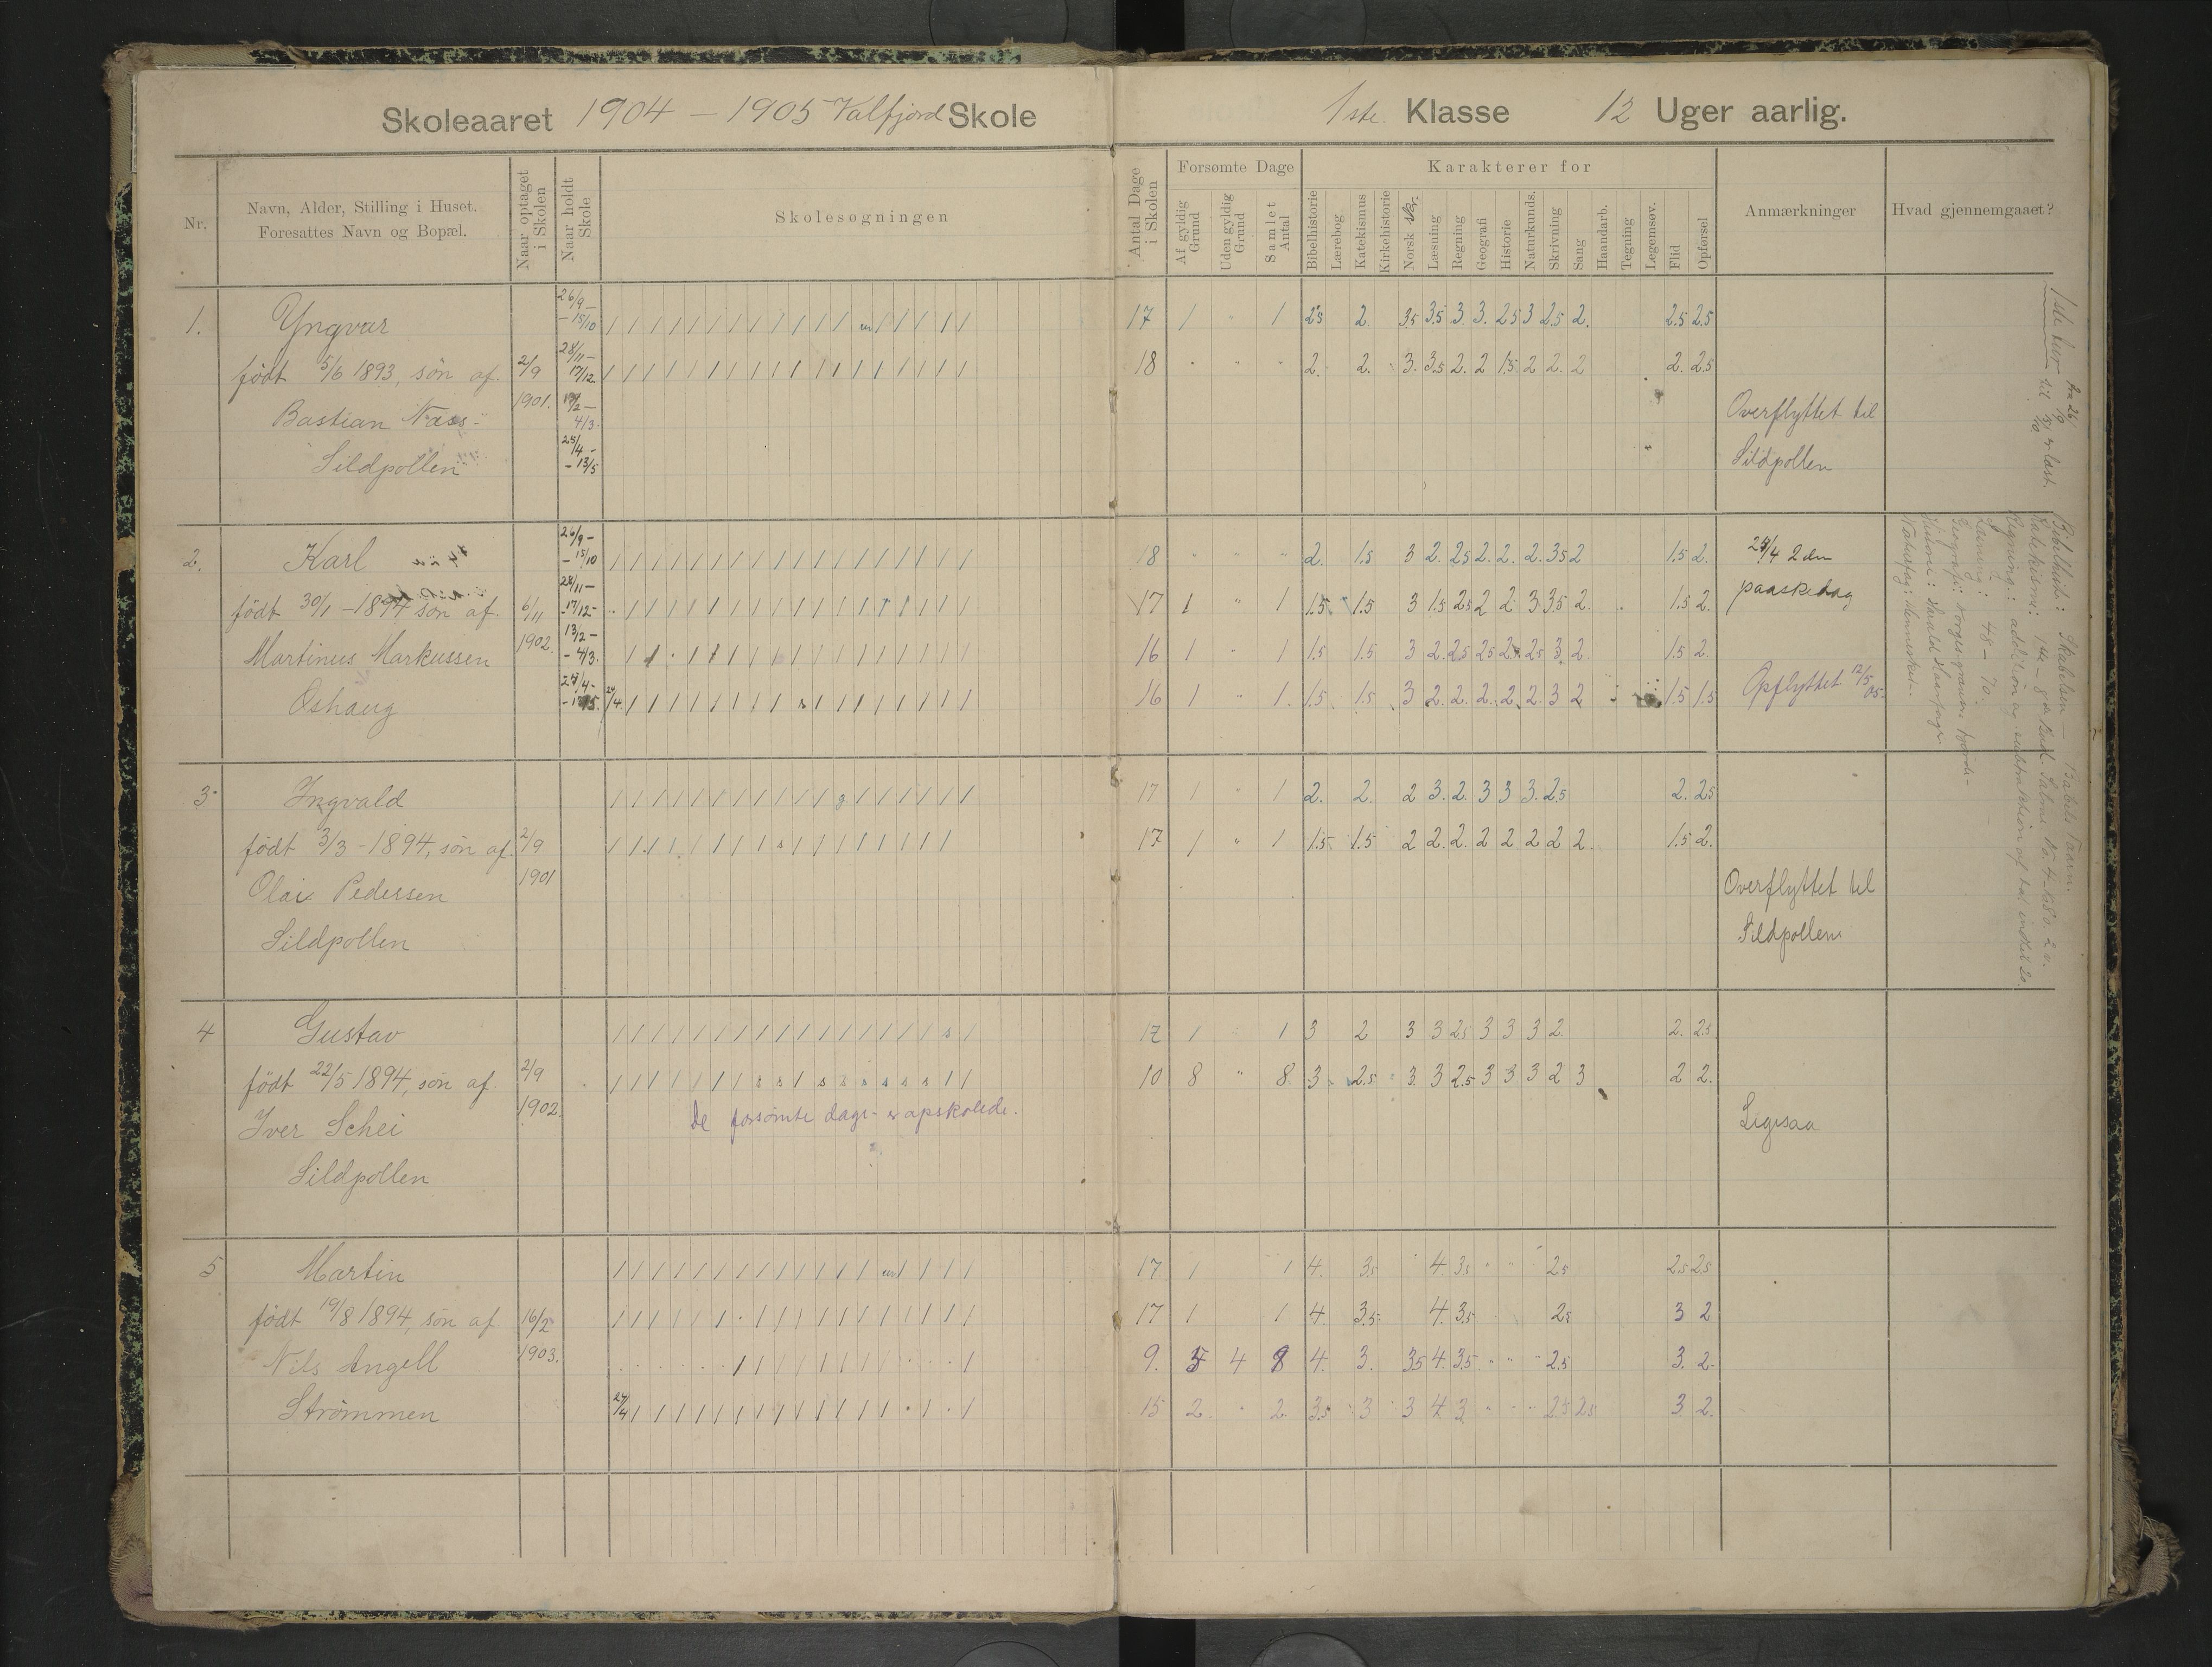 Skoleaaret 1904 – 1905 Valfjord Skole
1ste Klasse 12 Uger aarlig.
Nr.
Navn, Alder, Stilling i Huset.
Foresattes Navn og Bopæl.
Naar optaget
i Skolen
Naar holdt
Skole
Skolesøgningen
Antal Dage
i Skolen
Forsømte Dage
Af gyldig
Grund
Uden gyldig
Grund
Samlet
Antal
Karakterer for
Bibelhistorie
Lærebog
Katekismus
Kirkehistorie
Norsk Skr.
Læsning
Regning
Geografi
Historie
Naturkunds.
Skrivning
Sang
Haandarb.
Tegning
Legemsøv.
Flid
Opførsel
Anmærkninger
Hvad gjennemgaaet?
1. Yngvar
født 5/6 1893, søn af
Bastian Næss
Sildpollen
2/9
1901.
26/9 –
– 15/10
28/11 –
17/12.
4/3.
25/4 –
– 13/5
17 1 " 1 2.5 2. 3.5 3.5 3. 3. 2.5 3 2.5 2. 2.5 2.5
18 " " " 2. 2. 3. 3.5 2. 2 1.5 2 2. 2 2. 2.5
Overflyttet til
Sildpollen
2. Karl
født 30/1 – 1894 søn af.
Martinus Markussen
Oshaug
6/11
1902.
26/9 –
– 15/10
28/11 –
– 17/12 –
13/2 –
– 4/3.
18 " " " 2. 1.5 3 2. 2.5 2. 2. 2. 3.5 2 1.5 2.
17 1 " 1 1.5 1.5 3 1.5 2.5 2 2 3 3.5 2. 1.5 2.
16 1 " 1 1.5 1.5 3 2. 2.5 2.5 2. 2.5 3. 2. 1.5 2.
16 1 " 1. 1.5 1.5 3 2. 2. 2. 2. 2. 3 2 1.5 1.5
24/4 2den
paaskedag
Opflyttet 12/5 05.
3 Ingvald
født 3/3 – 1894, søn af.
Olai Pedersen
Sildpollen
2/9
1901
17 1 " 1 2. 2. 2 3. 2. 3 3 3. 2.5 2. 2.5
17 1 " 1 1.5 1.5 2 2. 2. 2 2 2 2 2. 1.5 2.
Overflyttet til
Sildpollen
4 Gustav
født 22/5 1894, søn af.
Iver Schei
Sildpollen
2/9
1902.
17 1 1 3 2 3 3 2.5 3 3 3 2. 2. 2.5
10 8 " 8 3 2.5 3. 3 2.5 3 3 3 2 3 2 2.
De forsømte dage er opskolede.
Ligesaa
5 Martin
født 19/8 1894, søn af
Nils Angell
Strømmen
16/2
1903.
17 1 1 4. 3.5 4. 3.5 " " 2.5 2.5 2.5
17 1 1 4. 3.5 4. 3.5 2.5 3 2
9. 4 8 4. 3. 3.5 4. 3.5 " " " 2.5 3. 2.
24/4
15 2. " 2. 3.5 3 3 4. 3. " " " 2.5 2.5 3. 2.
1ste kur fra 26/9 til 15/10 er læst.
Bibelhist.: Skabelsen – Babels Taarn.
Katekisme: 1ste – 8de bud.
Regning: addition og subtraktion af tal indtil 20.
Læsning: 48 – 70.
Geografi: Norges grænser, fjorde –
Historie: Harald Haarfagre
Naturfag: Mennesket.